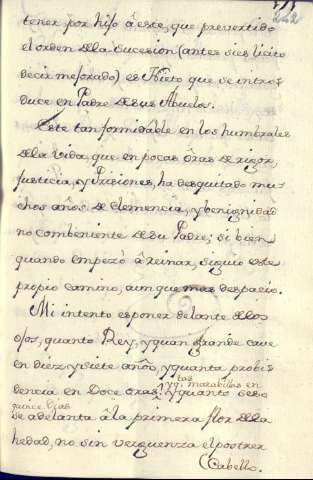 242
tener por hijo â êste, que prevertido
el orden de la sucesion (antes si es licito
decir mejorado) es Nieto que se intro-
duce en Padre de sus Abuelos.
Este tan formidâble en los humbrales
de la vida, que en pocas ôras de rigor,
justicia, y Prisiones, ha desquitado mu-
chos años de clemencia, y benignidad
no combeniente de su Padre; si bien
quando empezó â reinar, siguio este
propio camino, aunque mas despacio.
Mi intento es poner delante de los
ojos, quanto Rey, y quan grande cave
en diez y siete años, y quanta probi-
tas marabillas en
dencia en Doce oras, y q. y quanto se
quince dias
se adelanta â la primera flor de la
hedad, no sin verguenza el postrer
Cabello.